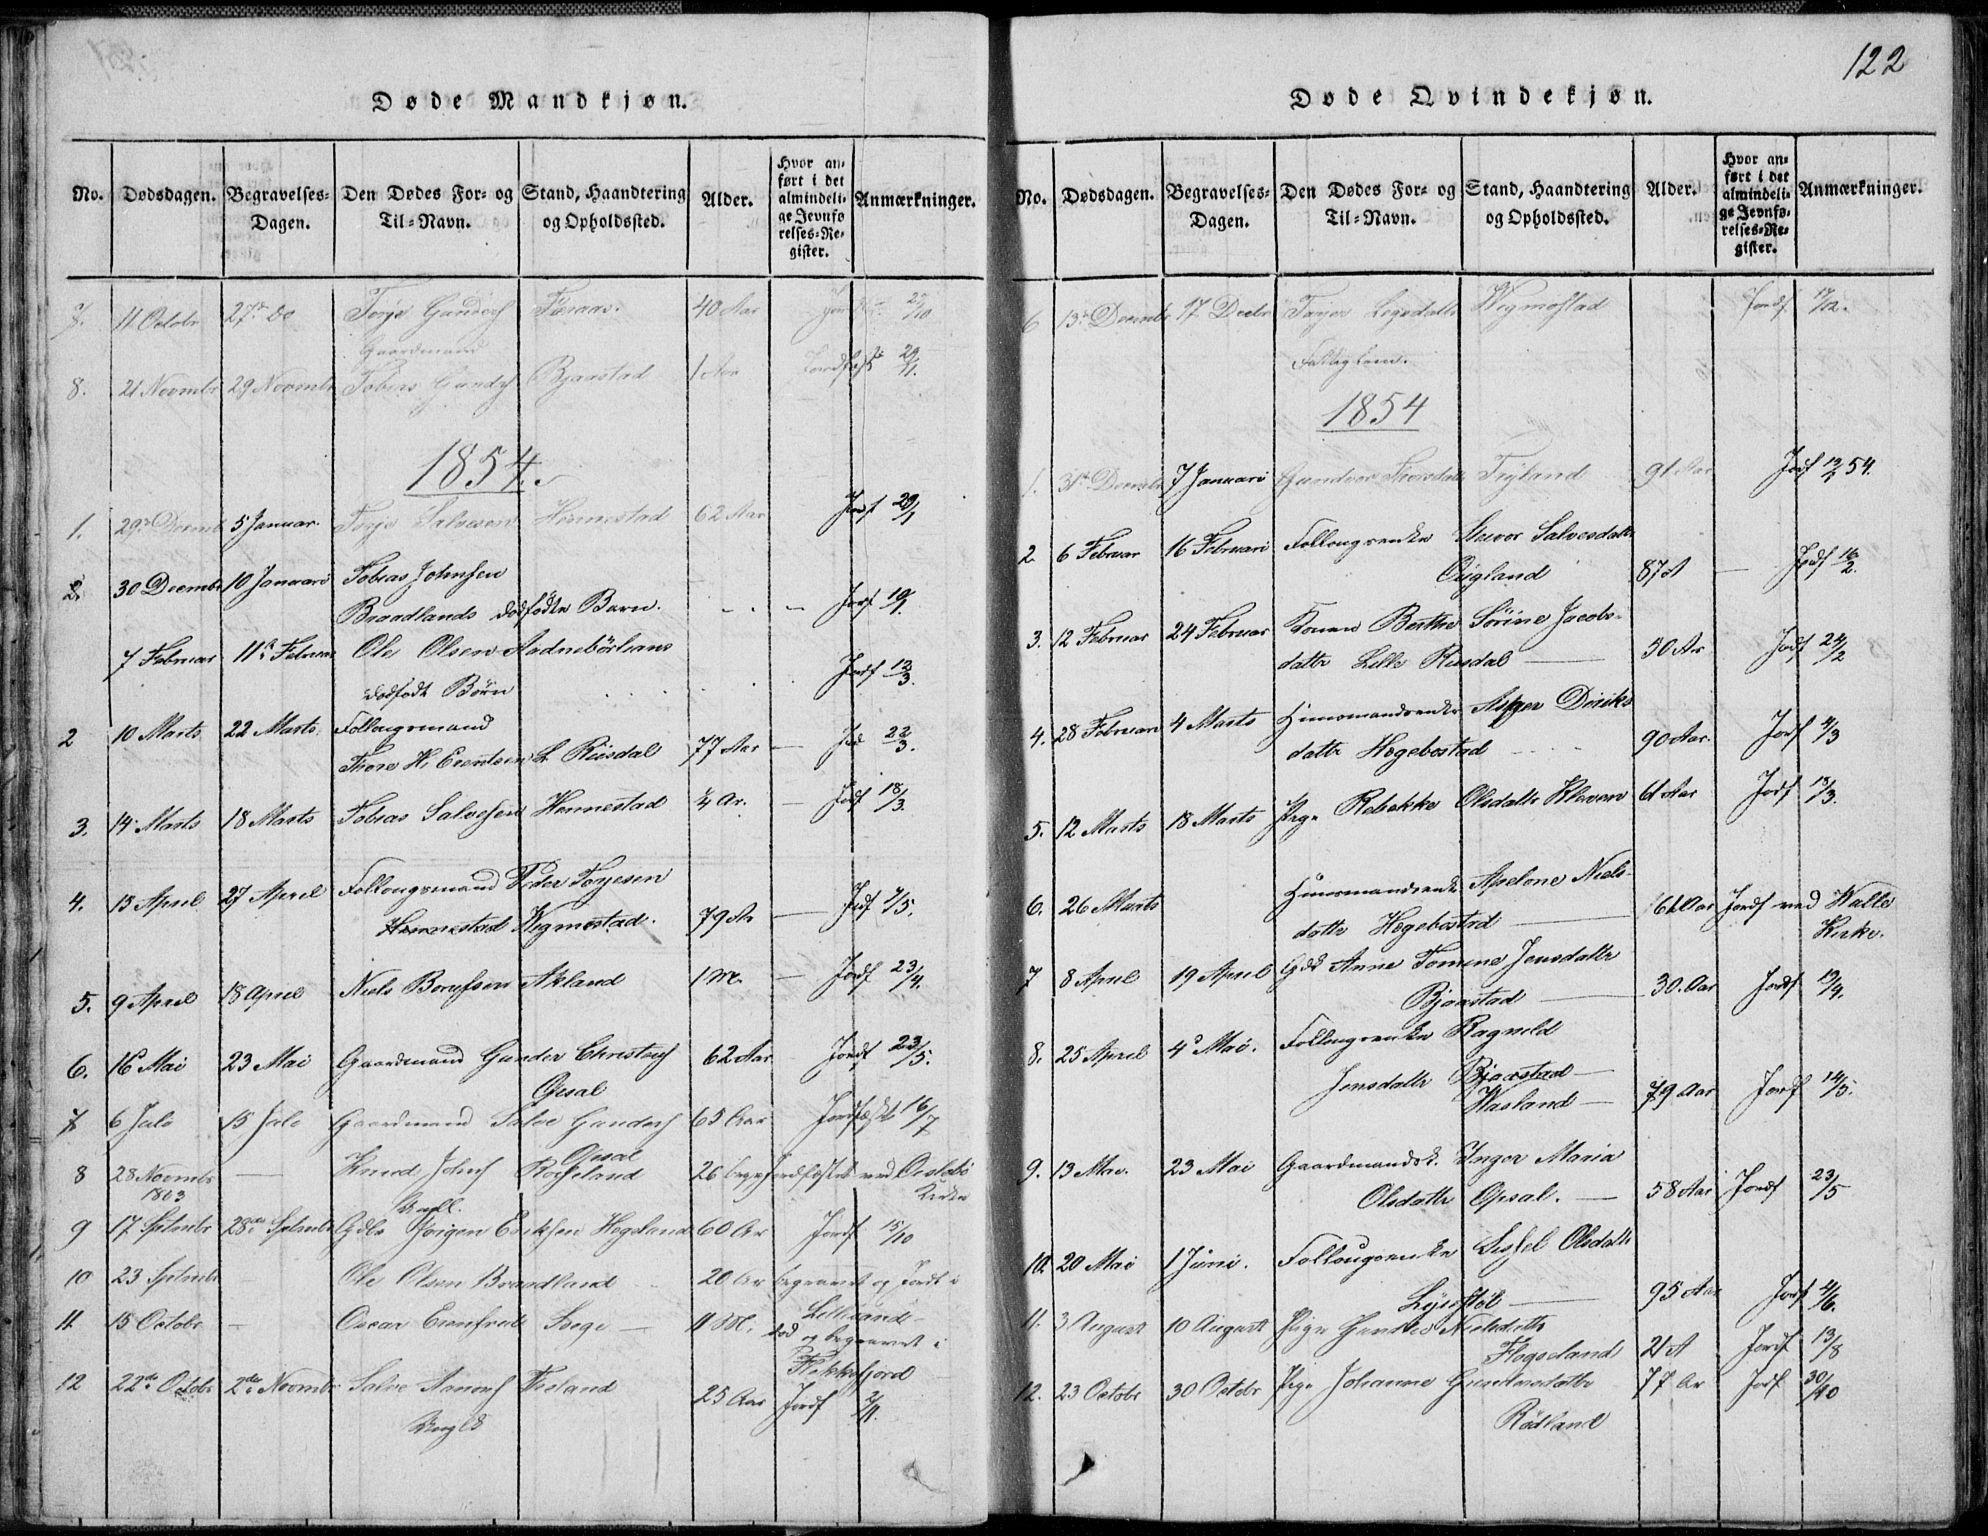 Døde Mandkjøn.
No. Dødsdagen. Begravelses-Dagen. Den Dødes For- og Til-Navn. Stand, Haandtering og Opholdssted. Alder. Hvor anført i det almindelige Jevnførelses-Register. Anmærkninger.
7. 11 Octobr 27de Do Terje Gundersf 40 Aar Jordf. 27/10
Gaardmand
8. 21 Novembr 29 Novembr Tobias Gundersf Bjaastad 1 Aar Jordfæst 29/11.
1854.
1. 29de Decemb 5 Januar. Terje Salvesen Hennestad 62 Aar Jordf 29/1
2. 30 Decembr 10 Januari Tobias Johnsen
Braadlands dødfødte Barn. - - - Jordf 10/1
7 Februar 11te Februar Ole Olsen Aadnebørleans
dødfødt Børn Jordf 12/3.
2 10 Marts 22 Marts. Follougsmand
Thore H. Evertsen L. Riisdal 77 Aar — Jod 22/3.
3. 14 Marts 18 Marts Tobias Salvesen Hennestad 4 Ar. — Jodf 18/3.
4. 13 April 27 April Follougsmand Peder Terjesen
Hennestad Wigmostad. 79 Ar — Jodf 7/5.
5. 9 April 18 April Niels Borufsen Akland 1 M. — Jodf 23/4.
6. 16 Mai 23 Mai Gaardmand Gunder Christensf 62 Aar Jordf 23/5.
Opsal
7 6 Juli 15 Juli Gaardmand Salve Gundersf 65 Aar Jordfæstet 16/7
Opsal
8 28 Novembr — Knud Johnsf Rosseland 26 begr. Jordfæstet ved Oddernes
1803 Kirke
9 17 Sptmbr 28de Sptmbr Gdbr Jørgen Eriksen Hegeland 60 Ar Jordf 15/10
10 23 Sptmbr — Ole Olsen Braadland — 20 Ar begravet og Jordf i
Lillesand
11 15 Octobr — Oscar Evenfred Svege — 11 M. død og begravet i
Flekkefjord
12 22de Octobr 2de Novembr Salve Aanonsf Fieland 25 Aar Jordf 2/11.
122
Døde Qvindekjøn.
No. Dødsdagen. Begravelses-Dagen. Den Dødes For- og Til-Navn. Stand, Haandtering og Opholdssted. Alder. Hvor anført i det almindelige Jevnførelses-Register. Anmærkninger.
6 13de Decembr 17 Decbr Wigmostad Jordf. 17/12.
Fattiglem.
1854
1. 31te Decembr 7 Januari Gundvor Thorsdattr Tryland 91 Aar Jodf 54.
2. 6 Februar 16 Februari Follougsenke Siuvor Salvesdattr
Øigland 87 A — Jodf 16/2.
3. 12 Februar 24 Februar Konen Berthe Sørine Jacobs-
dattr Lille Riisdal — 50 Ar Jodf 24/2
4. 28 Februari 4 Marts Huusmandsenke Asper Diriks
dattr Hegebostad 90 Aar. Jodf 4/3
5. 12 Marts 18 Marts Pige Rebekke Olsdattr Kleven 61 Aar Jodf 18/3.
6. 26 Marts Huusmandsenke Apelone Niels-
dattr Hegebostad — 61 Aar Jordf ved Walle
Kirke.
7 8 April 19 April Gdd Anne Tomine Jensdattr
Bjaastad — 30. Aar Jordf 19/4.
8. 25 April 4de Mai. Follougsenke Ragnild
Jensdattr Bjaastad —
Wasland — 79 Aar Jordf 14/5.
9. 13 Mai. 23 Mai Gaardmandsk. Inger Maria
Olsdattr Opsal. — 58 Aar Jordf 23/5
10. 20 Mai 1 Juni. Follougsenke Sissel Olsdattr
Lysestøl — 95 Aar Jordf 4/6.
11. 3 August 10 August Pige Nielsdattr
Hegeland 21 A Jordf 13/8
12. 23 Octobr 30 Octobr Pige Johanne Gundersdattr 77 Ar Jodf 30/10
Rødland